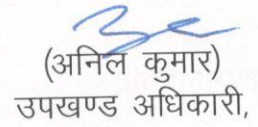 (अनिल कुमार)
उपखण्ड अधिकारी,